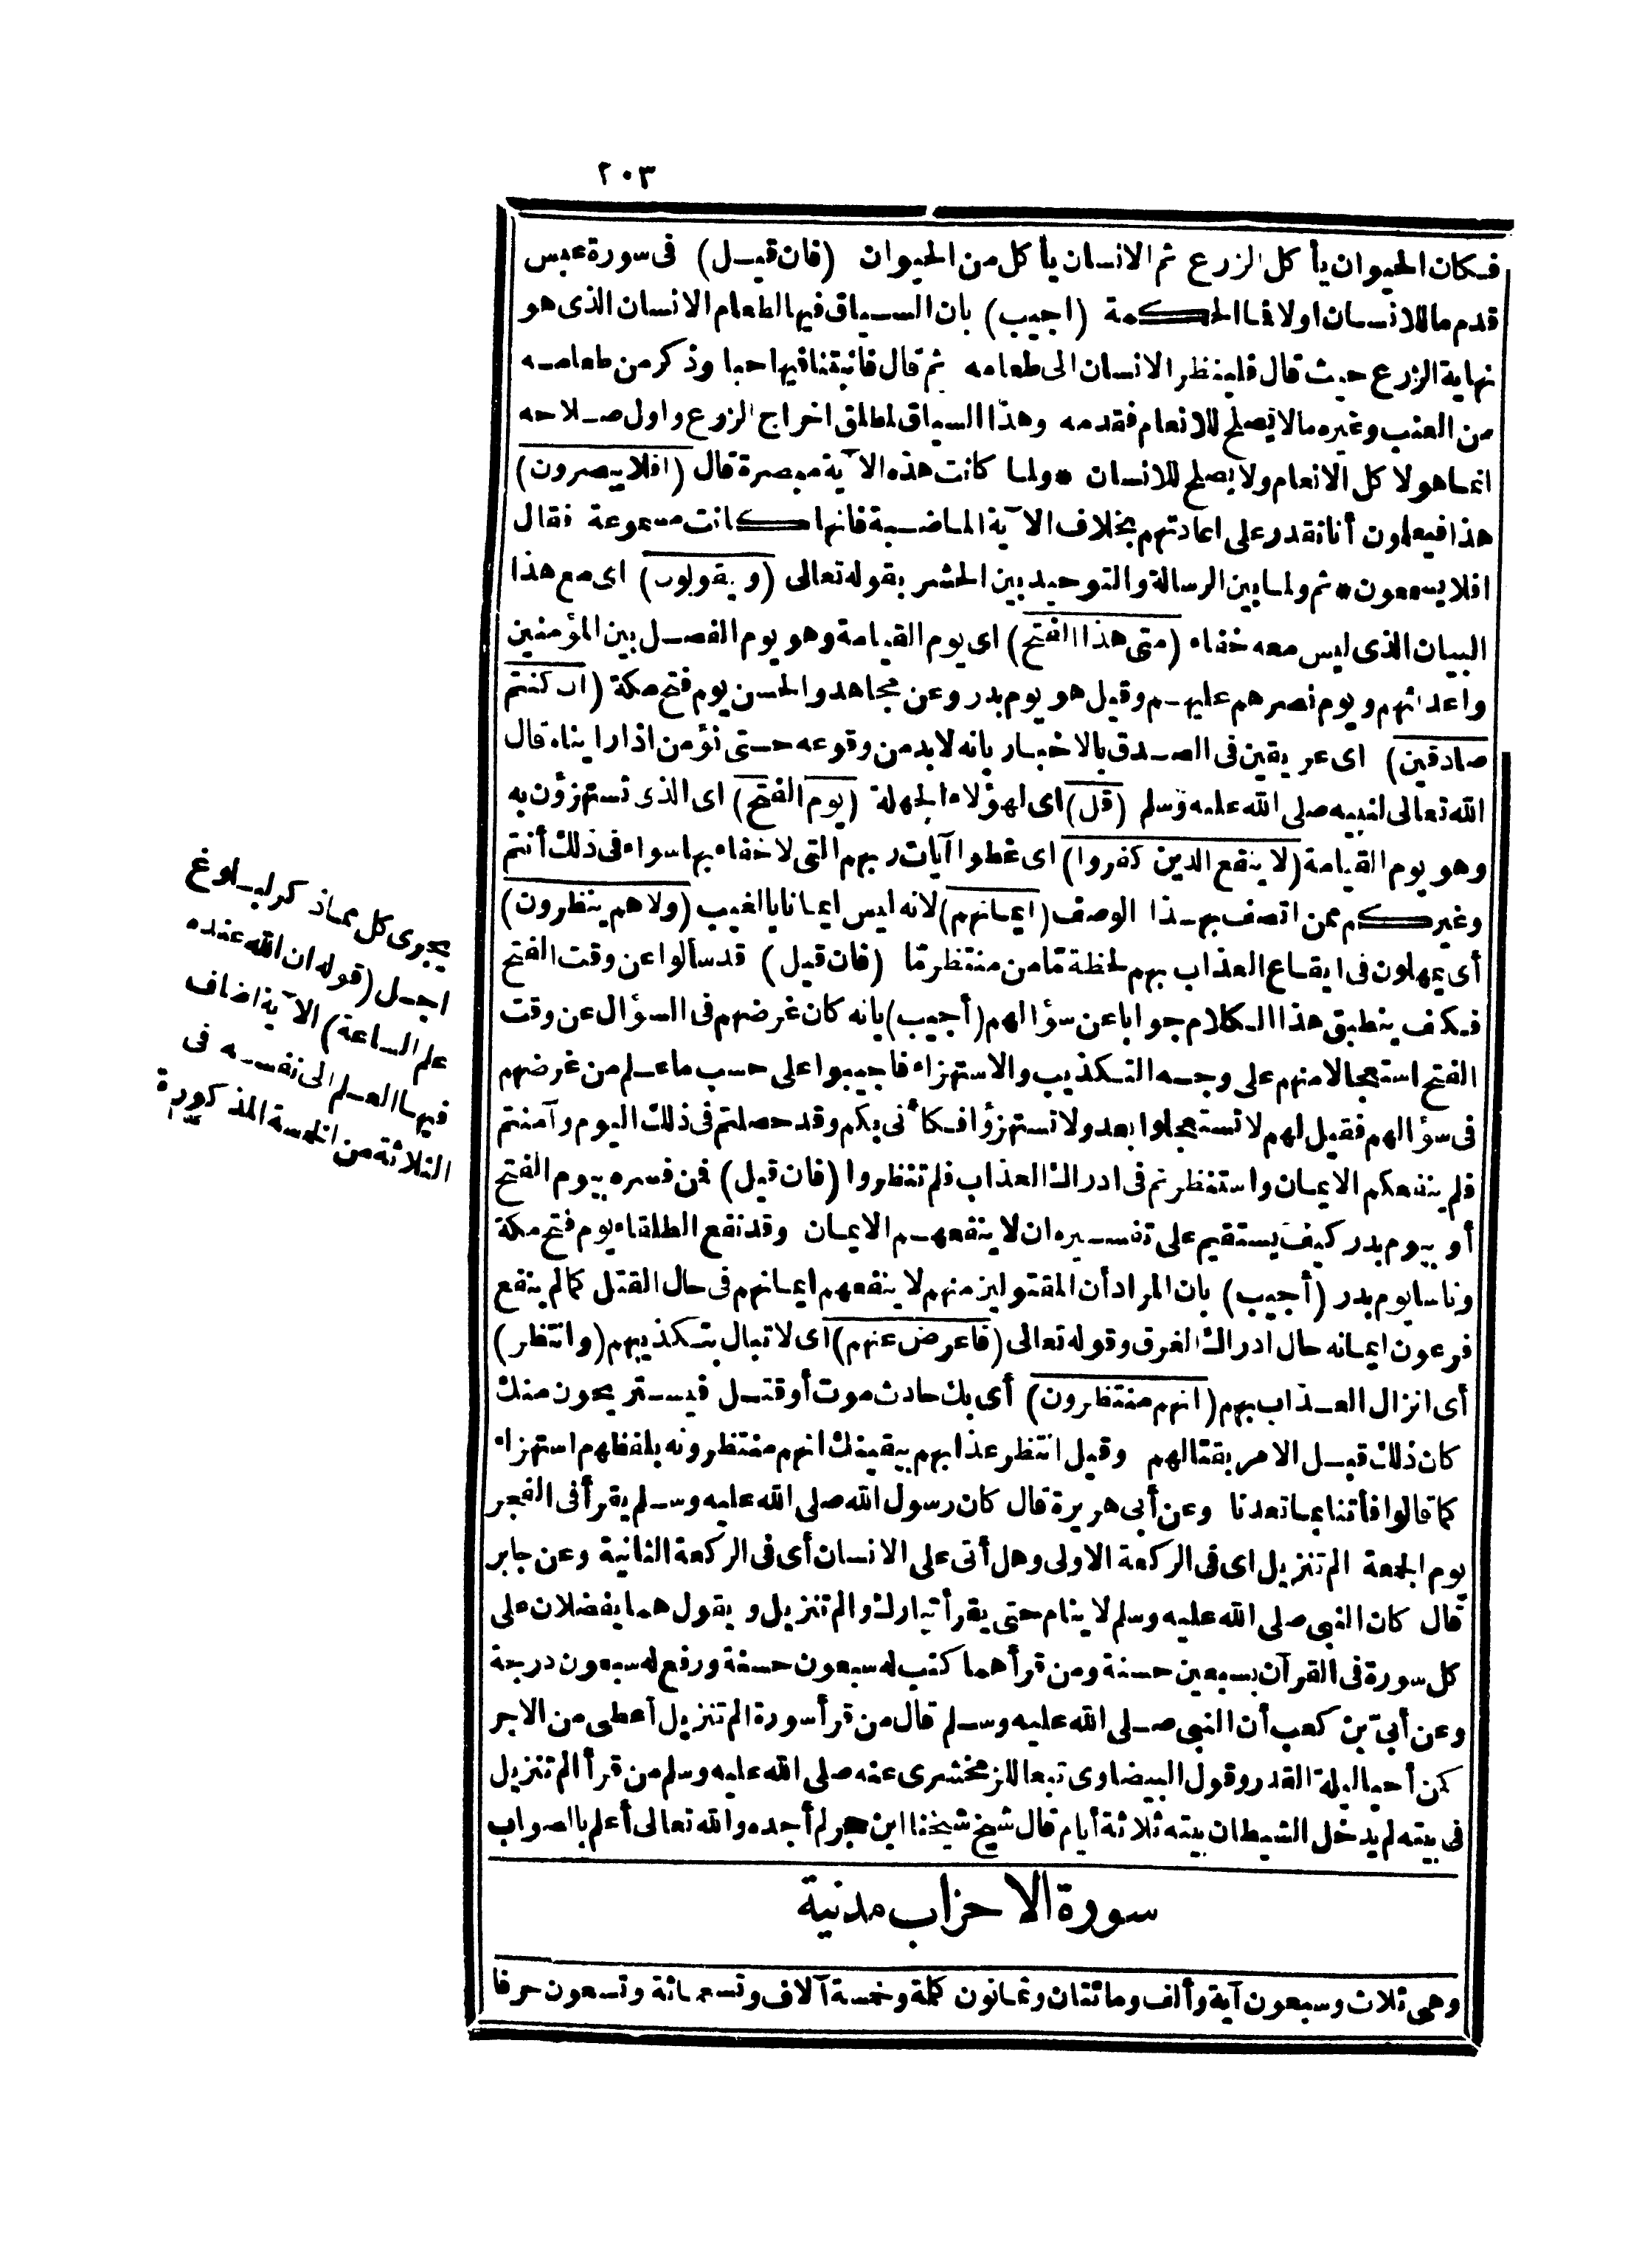 ٢٠٣
فكان الحيوان يأكل الزرع ثم الانسان يأكل من الحيوان (فان قيل) فى سورة عبس
قدم ما للانسان اولا فما الحكمة (اجيب) بان السياق فيها لطعام الانسان الذى هو
نهاية الزرع حيث قال فلينظر الانسان الى طعامه ثم قال فانبتنا فيها حبا وذكر من طعامه
من العنب وغيره مالا يصلح للانعام فقدمه وهذا السياق لمطلق اخراج الزرع واول صلاحه
انما هو لاكل الانعام ولا يصلح للانسان * ولما كانت هذه الآية مبصرة قال (افلا يبصرون)
هذا فيعلمون أنا نقدر على اعادتهم بخلاف الآية الماضية فانها كانت مسموعة فقال
افلا يسمعون * ثم ولما بين الرسالة والتوحيد بين الحشر بقوله تعالى (ويقولون) اى مع هذا
البيان الذى ليس معه خفاء (متى هذا الفتح) اى يوم القيامة وهو يوم الفصل بين المؤمنين
واعدائهم ويوم نصرهم عليهم وقيل هو يوم بدر وعن مجاهد والحسن يوم فتح مكة (ان كنتم
صادقين) اى عريقين فى الصدق بالاخبار بانه لابد من وقوعه حتى نؤمن اذا رايناه قال
الله تعالى لنبيه صلى الله عليه وسلم (قل) اى لهؤلاء الجهلة (يوم الفتح) اى الذى تستهزؤن به
وهو يوم القيامة (لا ينفع الذين كفروا) اى غطوا آيات ربهم التى لا خفاء بها سواء فى ذلك أنتم
وغيركم ممن اتصف بهذا الوصف (ايمانهم) لانه ليس ايمانا بالغيب (ولا هم ينظرون)
أى يمهلون فى ايقاع العذاب بهم لحظة مّا من منتظر مّا (فان قيل) قد سألوا عن وقت الفتح
فكيف ينطبق هذا الكلام جوابا عن سؤالهم (أجيب) بانه كان غرضهم فى السؤال عن وقت
الفتح استعجالا منهم على وجه التكذيب والاستهزاء فاجيبوا على حسب ما علم من غرضهم
فى سؤالهم فقيل لهم لا تستعجلوا بعد ولا تستهزؤا فكأنى بكم وقد حصلتم فى ذلك اليوم وآمنتم
فلم ينفعكم الايمان واستنظرتم فى ادراك العذاب فلم تنظروا (فان قيل) فمن فسره بيوم الفتح
أو بيوم بدر كيف يستقيم على تفسيره ان لا ينفعهم الايمان وقد نفع الطلقاء يوم فتح مكة
وناسا يوم بدر (أجيب) بان المراد أن المقتولين منهم لا ينفعهم ايمانهم فى حال القتل كما لم ينفع
فرعون ايمانه حال ادراك الغرق وقوله تعالى (فاعرض عنهم) اى لا تبال بتكذيبهم (وانتظر)
أى انزال العذاب بهم (انهم منتظرون) أى بك حادث موت أو قتل فيستريحون منك
كان ذلك قبل الامر بقتالهم وقيل انتظر عذابهم بيقينك انهم منتظرونه بلفظهم استهزاء
كما قالوا فأتنا بما تعدنا وعن أبى هريرة قال كان رسول الله صلى الله عليه وسلم يقرأ فى الفجر
يوم الجمعة الم تنزيل اى فى الركعة الاولى وهل أتى على الانسان أى فى الركعة الثانية وعن جابر
قال كان النبى صلى الله عليه وسلم لا ينام حتى يقرأ تبارك والم تنزيل ويقول هما يفضلان على
كل سورة فى القرآن بسبعين حسنة ومن قرأهما كتب له سبعون حسنة ورفع له سبعون درجة
وعن أبىّ بن كعب أن النبى صلى الله عليه وسلم قال من قرأ سورة الم تنزيل أعطى من الاجر
كمن أحيا ليلة القدر وقول البيضاوى تبعا للزمخشرى عنه صلى الله عليه وسلم من قرأ الم تنزيل
فى بيته لم يدخل الشيطان بيته ثلاثة أيام قال شيخ شيخنا ابن حجر لم أجده والله تعالى أعلم بالصواب
سورة الاحزاب مدنية
وهى ثلاث وسبعون آية وألف ومائتان وثمانون كلمة وخمسة آلاف وتسعمائة وتسعون حرفا
يجرى كل مما ذكر لبلوغ
اجل (قوله ان الله عنده
علم الساعة) الآية اضاف
فيها العلم الى نفسه فى
الثلاثة من الخمسة المذكورة